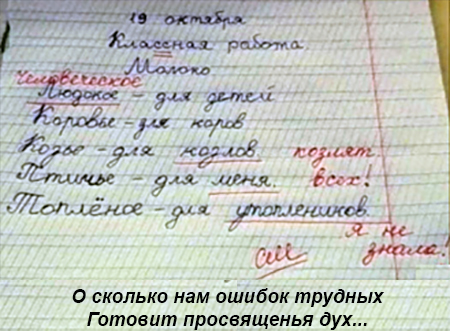 19 октября
Классная работа.
Молоко
человеческое
Людское - для детей
Коровье - для коров
Козье - для козлов. козлят.
Птичье - для меня. всех!
Топлёное - для утоплеников.
Я не
знала!
См
О сколько нам ошибок трудных
Готовит просвященья дух...